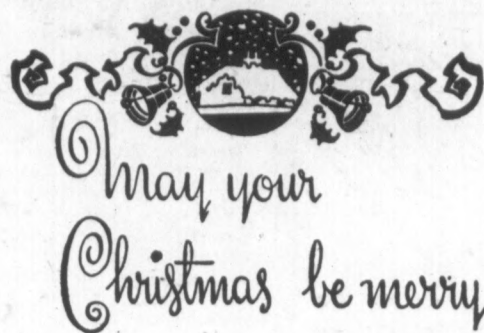 May your
Christmas be merry